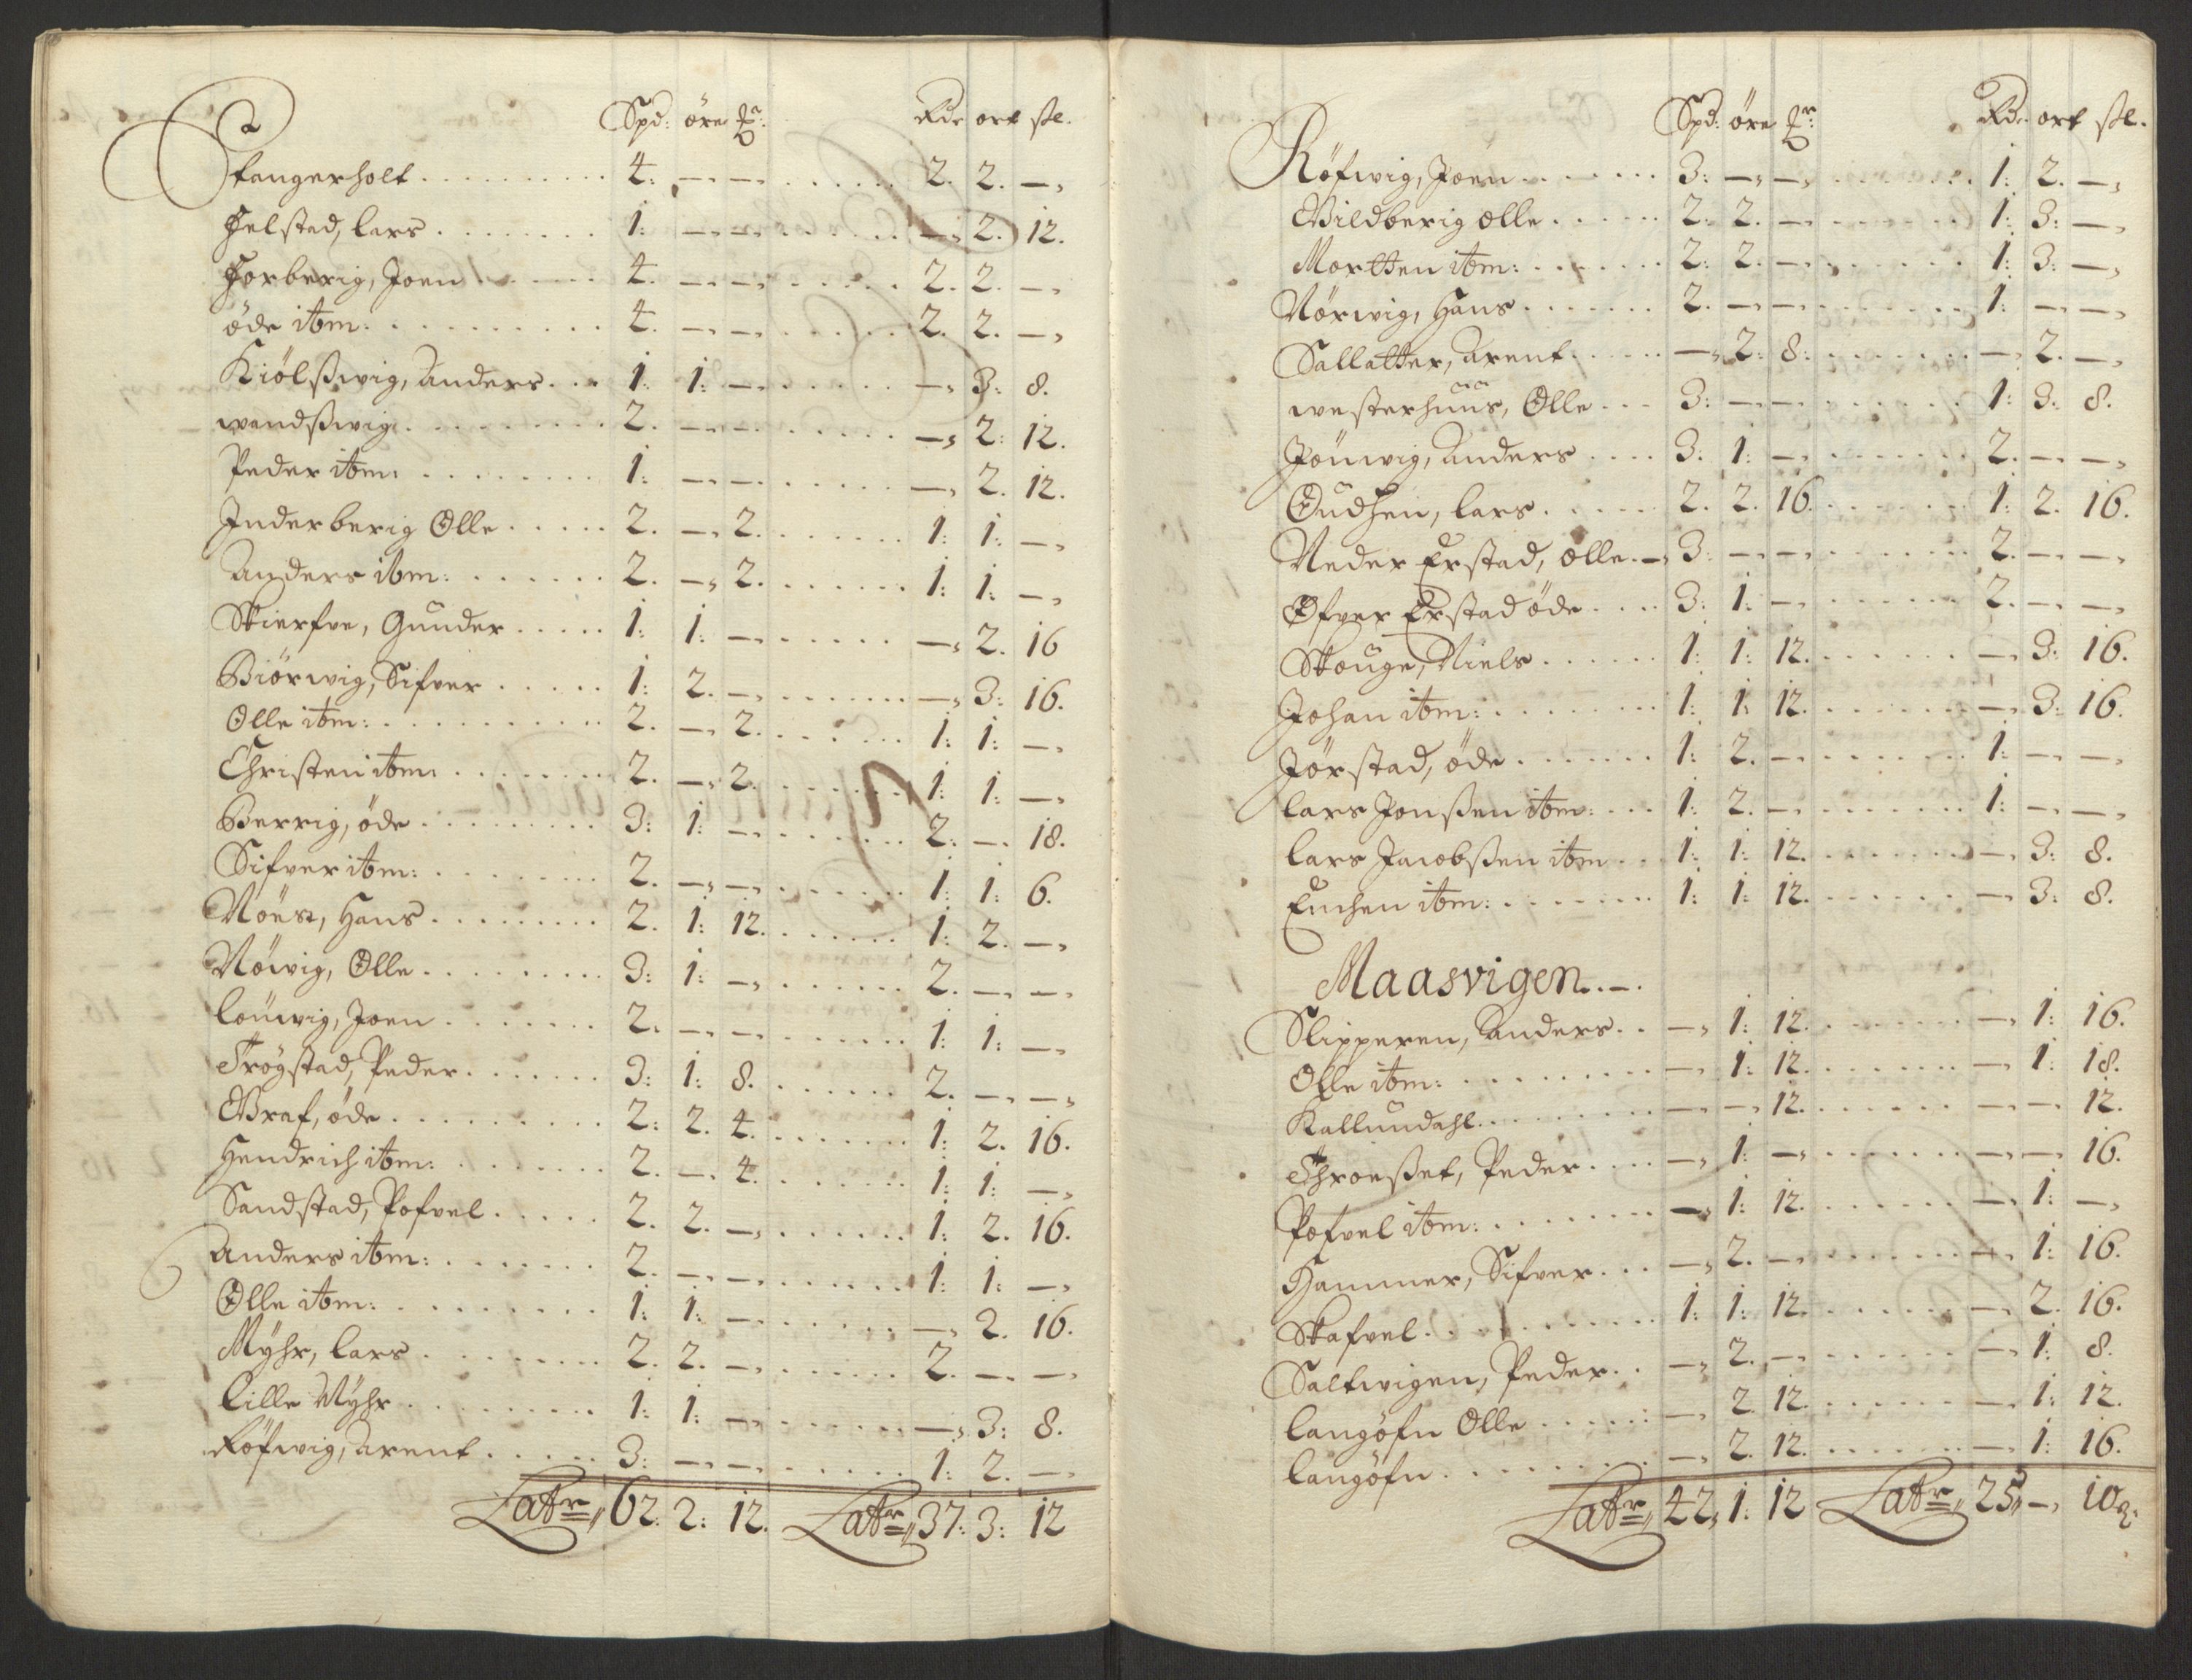 Spd: öre Rdr ort ſk.
Stangerholt . . . . . . . . . 4: —, —, . . . . . . 2. 2. —,
Helstad, lars . . . . . . . . 1: —, —, . . . . . . —, 2. 12.
Forberig, Joen . . . . . 4. —, —, . . . . . . 2. 2. —,
öde itm: . . . . . . . . . . 4. —, —, . . . . . . 2. 2. —,
Kiölßwig, Anders . . . 1: 1: —, . . . . . . —, 3: 8.
wandßwig . . . . . . . . . 2. —, —, . . . . . . —, 2: 12.
Peder itm: . . . . . . . . . 1: —, —, . . . . . . —, 2. 12.
Inderberig Olle . . . . . 2. —, 2. . . . . . . 1: 1: —,
Anders itm: . . . . . . . 2. —, 2. . . . . . . 1: 1: —,
Skierfve, Gunder . . . . . 1: 1: —, . . . . . . —, 2. 16
Biörwig, Sifver . . . . . 1: 2. —, . . . . . . —, 3: 16.
Olle itm: . . . . . . . . . . 2. —, 2. . . . . . . 1: 1: —,
Christen itm: . . . . . . . . 2. —, 2. . . . . . . 1: 1: —,
Berrig, öde . . . . . . . . . 3: 1: —, . . . . . . 2: —. 18.
Sifver itm: . . . . . . . . 2. —, —, . . . . . . 1: 1: 6.
Nöest, Hans . . . . . . . . 2. 1: 12. . . . . . . 1: 2. —,
Nöwig, Olle . . . . . . . . . 3: 1: —, . . . . . . 2. —, —,
Löuwig, Joen . . . . . . . . 2. —, —, . . . . . . 1: 1: —,
Trögstad, Peder . . . . . . . 3: 1: 8. . . . . . . 2. —, —,
Graf, öde . . . . . . . . . . 2: 2. 4. . . . . . . 1: 2. 16.
Hendrich itm: . . . . . . . . 2. —, 4. . . . . . . 1: 1: —,
Sandstad, Pofvel . . . . . 2. 2. —, . . . . . . 1: 2. 16.
Anders itm: . . . . . . . . 2. —, —, . . . . . . 1: 1: —,
Olle itm: . . . . . . . . . . 1: 1: —, . . . . . . —, 2. 16.
Myhr, lars . . . . . . . . . 2. 2. —, . . . . . . 2. —, —,
Lille Myhr . . . . . . . . . 1: 1: —, . . . . . . —, 3: 8.
Röfwig, Arent . . . . . 3: —, —, . . . . . . 1: 2. —,
Latr 62. 2: 12. Latr 37: 3: 12
Spd: öre Rdr. ort ſk.
Röfwig, Joen . . . . . . . 3: —, —, . . . . . . 1: 2. —,
Vildberig olle . . . . . . 2: 2. —, . . . . . . 1: 3: —,
Mortten itm: . . . . . . . 2: 2. —, . . . . . . 1: 3: —,
Nörwig, Hans . . . . . . . 2. —, —, . . . . . . 1: —, —,
Sallatter, Arent . . . . . —, 2: 8: . . . . . . —, 2. —,
westerhuus, Olle . . . 3: —, —, . . . . . . 1: 3: 8.
Jönwig, Anders . . . . 3. 1: —, . . . . . . 2. —, —,
Oudhen, lars . . . . . 2. 2. 16. . . . . . . 1: 2. 16.
Neder Erstad, olle . —, 3: —, —, . . . . . . 2. —, —,
Øfver Erstad öde . . . . 3: 1: —, . . . . . . 2. —, —,
Skouge, Niels . . . . . . . 1: 1: 12. . . . . . . —, 3: 16.
Johan itm: . . . . . . . . 1: 1: 12. . . . . . . —, 3: 16.
Jörstad, öde . . . . . . . 1: 2. —, . . . . . . 1: —, —,
Lars Jonßen itm: . . . 1: 2. —, . . . . . . 1: —, —,
Lars Jacobßen itm . . 1: 1: 12. . . . . . . —, 3: 8.
Enchen itm: . . . . . . . . 1: 1: 12. . . . . . . —, 3: 8.
Maasvigen . . —.
Slipperen, Anders . . —, 1: 12. . . . . . . —, 1: 16.
Olle itm: . . . . . . . . . —, 1: 12. . . . . . . —, 1: 18.
Kallundahl . . . . . . . . —, —, 12. . . . . . . —, —, 12.
Throeßet, Peder . . . . —, 1: —, . . . . . . —, —, 16.
Pofvel itm: . . . . . . . . —, 1: 12. . . . . . . —, 1: —,
Hammer, Sifver . . . —, 2. —, . . . . . . —, 1: 16.
Skafvel . . . . . . . . . . 1: 1: 12. . . . . . . —, 2. 16.
Saltwigen, Peder . . —, 2. —, . . . . . . —, 1: 8.
Langöfn Olle . . . . . : —, 2. 12. . . . . . . —, 1: 12.
Langöfn . . . . . . . . . —, 2. 12. . . . . . . —, 1: 16.
Latr 42, 1: 12 Latr 25, —, 10